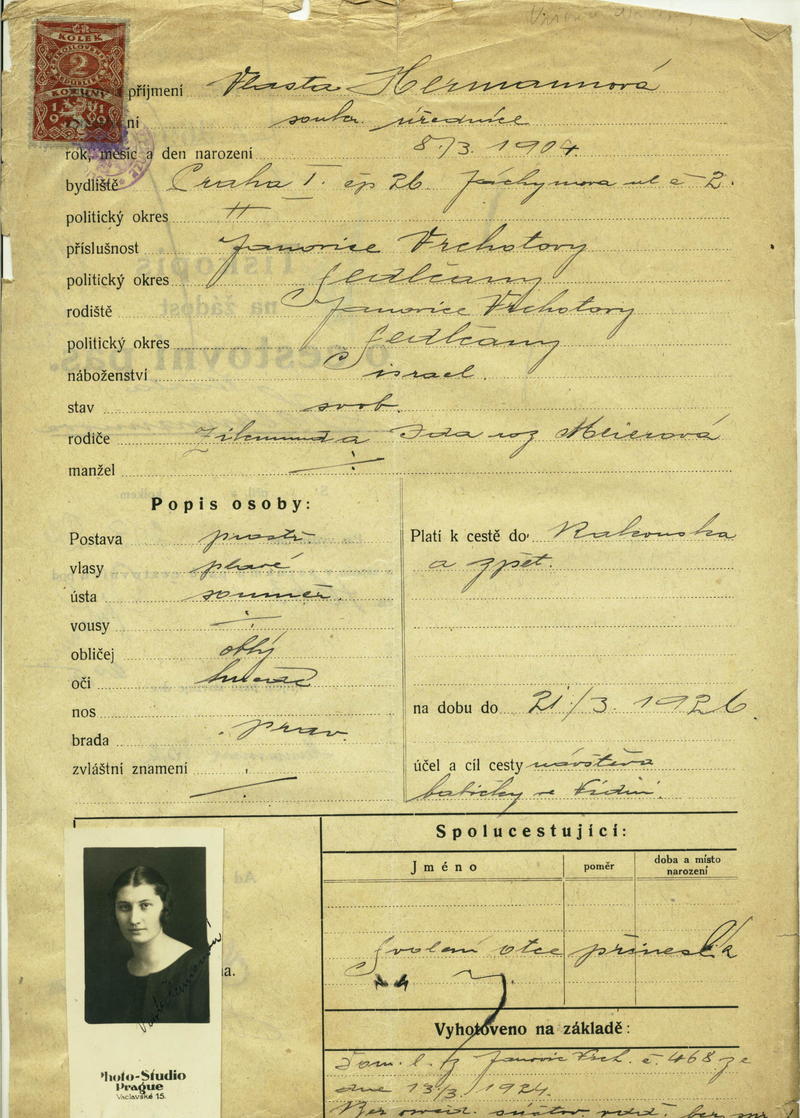 ČR
KOLEK
ČESKOSLOVENSKÁ
2
REPUBLIKA
KORUNY
19 19
příjmení Vlasta Hermannová
ní soukr. úřednice
rok, měsíc a den narození 8./3. 1904.
bydliště Praha I. čp 26. Jáchymova ul č 2.
politický okres "
příslušnost Janovice Vrchotovy
politický okres Sedlčany
rodiště Janovice Vrchotovy
politický okres Sedlčany
náboženství israel.
stav svob.
rodiče Zikmund a Ida roz Meierová
manžel ÷
Popis osoby:
Postava prostř.
vlasy plavé
ústa souměr.
vousy ÷
obličej oblý
oči
nos
brada prav.
zvláštní znamení
Platí k cestě do Rakouska
a zpět.
na dobu do 21./3. 1926.
účel a cíl cesty návštěva
babičky ve Vídni.
Spolucestující:
Jméno poměr doba a místo
narození
Svolení otce přinesla
Vyhotoveno na základě:
Dom. l. z Janovic Vrch. č. 468 ze
dne 13./3. 1924.
na.
Photo-Studio
Prague
Václavské 15.